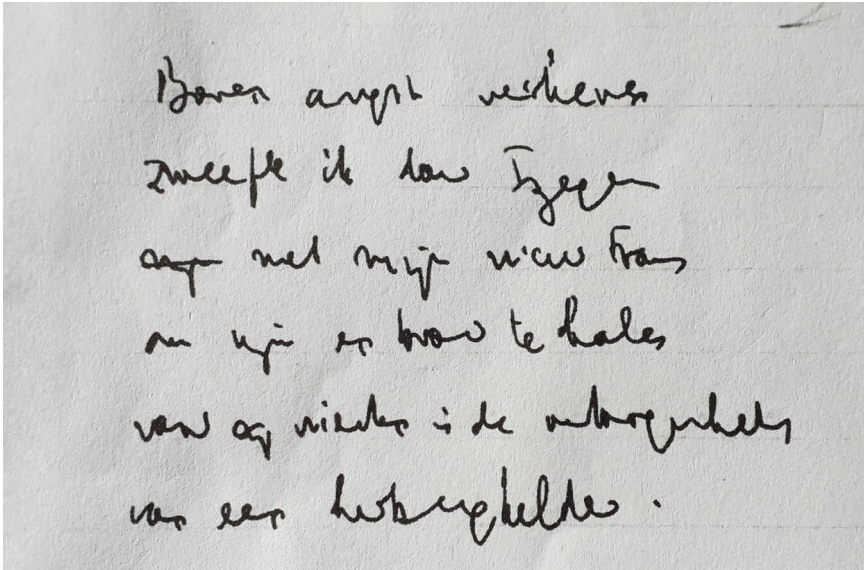 Boven angst verheven
zweefde ik door Izegem
met mijn nieuw Frans
om wijn en brood te halen
voor og in de verborgenheid
van een herbergkelder.